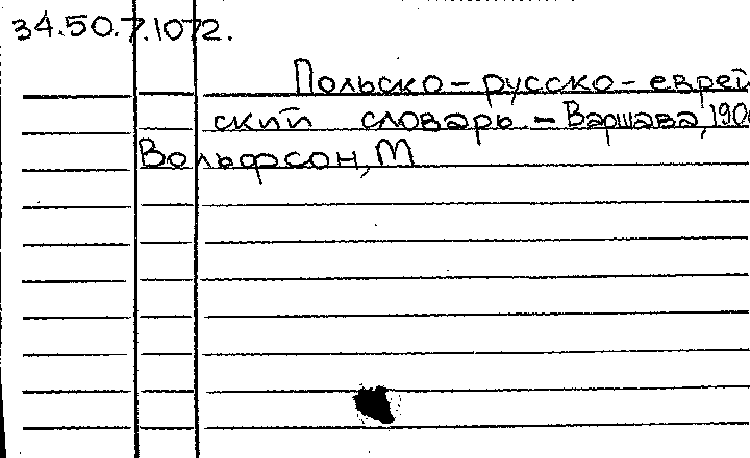 34.50.7.1072.
Польско-русско-еврей
ский словарь - Варшава, 190
Вольфсон, М